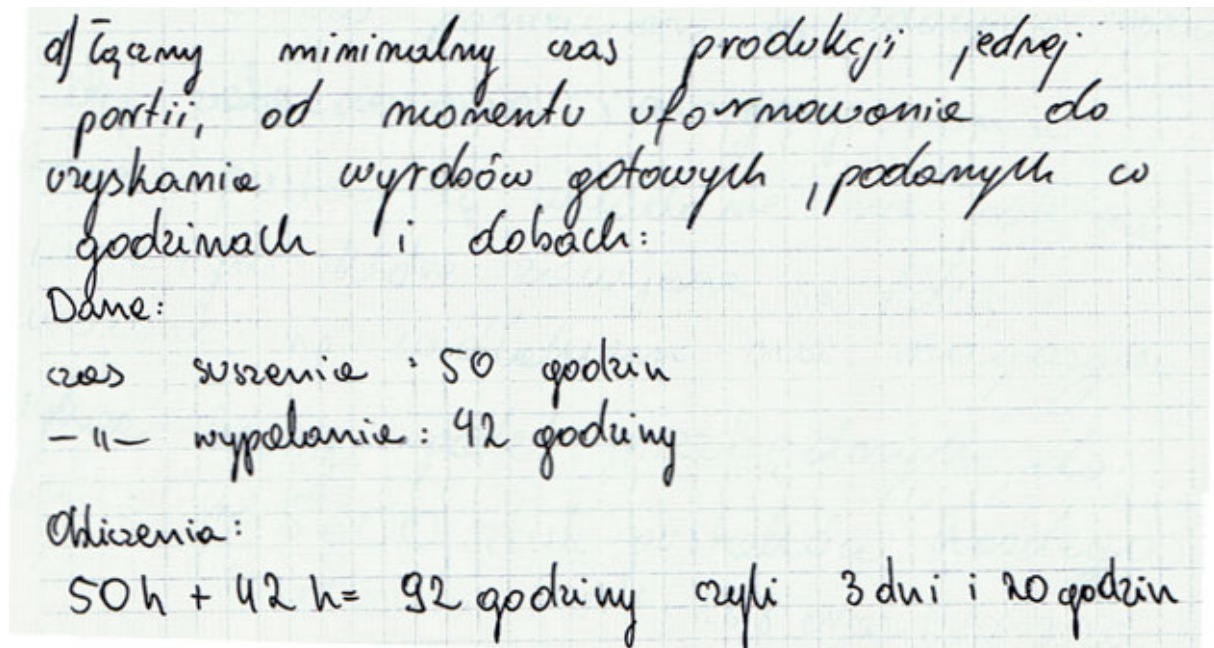 d) Łączny minimalny czas produkcji jednej
partii, od momentu uformowania do
uzyskania wyrobów gotowych, podanych w
godzinach i dobach:
Dane:
czas suszenia : 50 godzin
–"– wypalania : 42 godziny
Obliczenia:
50h + 42 h= 92 godziny czyli 3 dni i 20 godzin